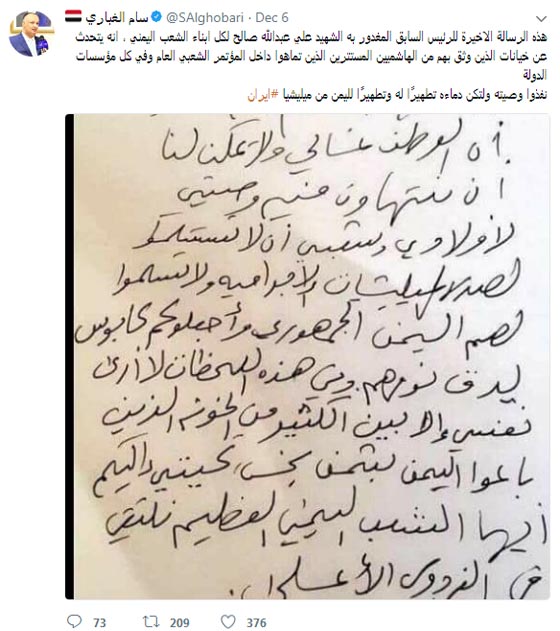 سام الغباري @SAlghobari · Dec 6
هذه الرسالة الاخيرة للرئيس السابق المغدور به الشهيد علي عبدالله صالح لكل ابناء الشعب اليمني ، انه يتحدث
عن خيانات الذين وثق بهم من الهاشميين المستترين الذين تماهوا داخل المؤتمر الشعبي العام وفي كل مؤسسات
الدولة
نفذوا وصيته ولتكن دماءه تطهيرًا له وتطهيرًا لليمن من ميليشيا #ايران
أن الوطن غالي ولا يمكن لنا
أن نتهاون فيه وصيتي
لأولادي وشعبي أن لا تستسلمو
لهذه الميليشيات الإجراميه ولا تسلموا
لهم اليمن الجمهوري وأجعلوكم كابوس
يدق نومهم وفي هذه اللحظات لا أرئ
نفسي إلا بين الكثير من الخونه الذين
باعوا اليمن بثمن بخس تحيتي إليكم
أيها الشعب اليمني العظيم نلتقي
في الفردوس الأعلى
73 209 376